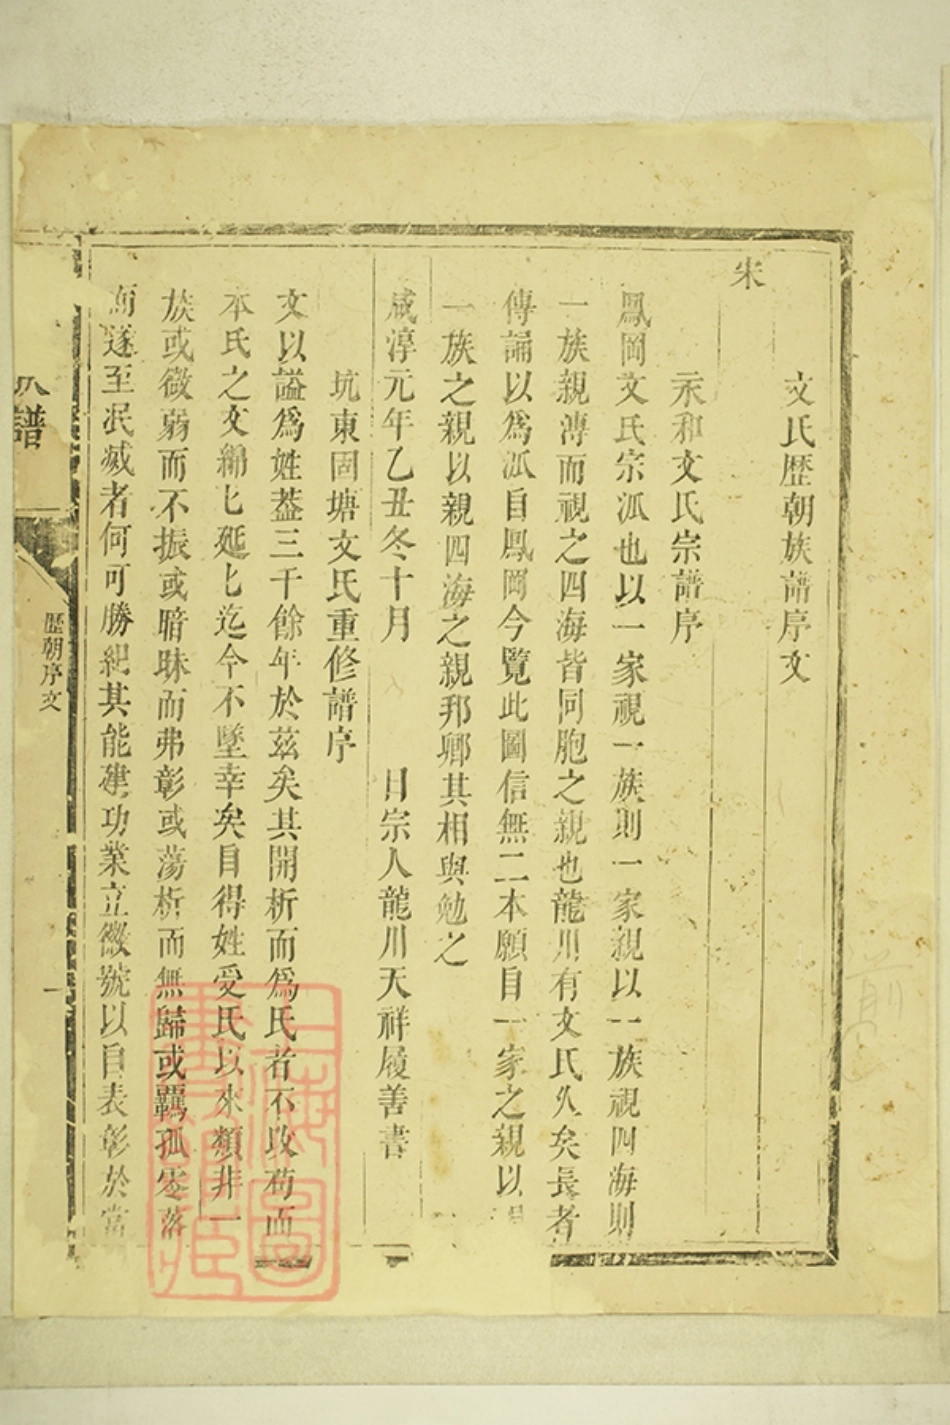 文氏歴朝族譜序文
宋
永和文氏宗譜序
鳳岡文氏宗派也以一家視一族則一家親以一族視四海則
一族親溥而視之四海皆同胞之親也龍川有文氏久矣長者
傳誦以爲派自鳳岡今覽此圖信無二本願自一家之親以
一族之親以親四海之親邦卿其相與勉之
咸淳元年乙丑冬十月 日宗人龍川天祥履善書
坑東固塘文氏重修譜序
文以謚爲姓葢三千餘年於茲矣其開析而爲氏者不攺苟而
本氏之文綿匕延匕迄今不墜幸矣自得姓受氏以來類非一
族或微弱而不振或暗昧而弗彰或蕩析而無歸或羈孤零落
而遂至泯滅者何可勝紀其能建功業立徽號以自表彰於當
譜
歴朝序文
一
上海圖書館藏